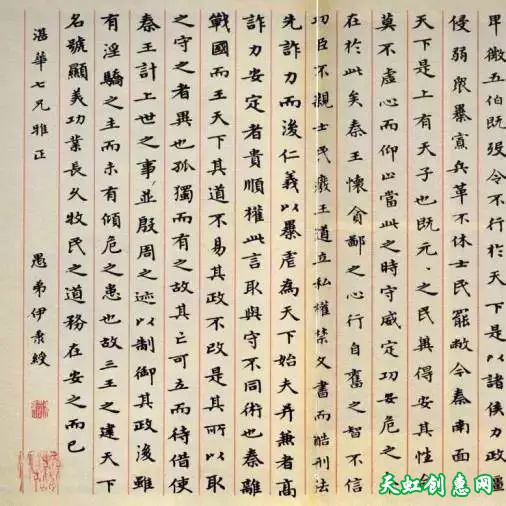 卑微五伯既歿令不行於天下是以諸侯力政彊
侵弱眾暴寡兵革不休士民罷敝今秦南面
天下是上有天子也既元〻之民冀得安其性命
莫不虛心而仰上當此之時守威定功安危之
在於此矣秦王懷貪鄙之心行自奮之智不信
功臣不親士民廢王道立私權禁文書而酷刑法
先詐力而後仁義以暴虐為天下始夫并兼者高
詐力安定者貴順權此言取與守不同術也秦離
戰國而王天下其道不易其政不改是其所以取
之守之者異也孤獨而有之故其亡可立而待借使
秦王計上世之事並殷周之迹以制御其政後雖
有淫驕之主而未有傾危之患也故三王之建天下
名號顯美功業長久牧民之道務在安之而已
湛華七兄雅正 愚弟伊秉綬
天虹创惠网